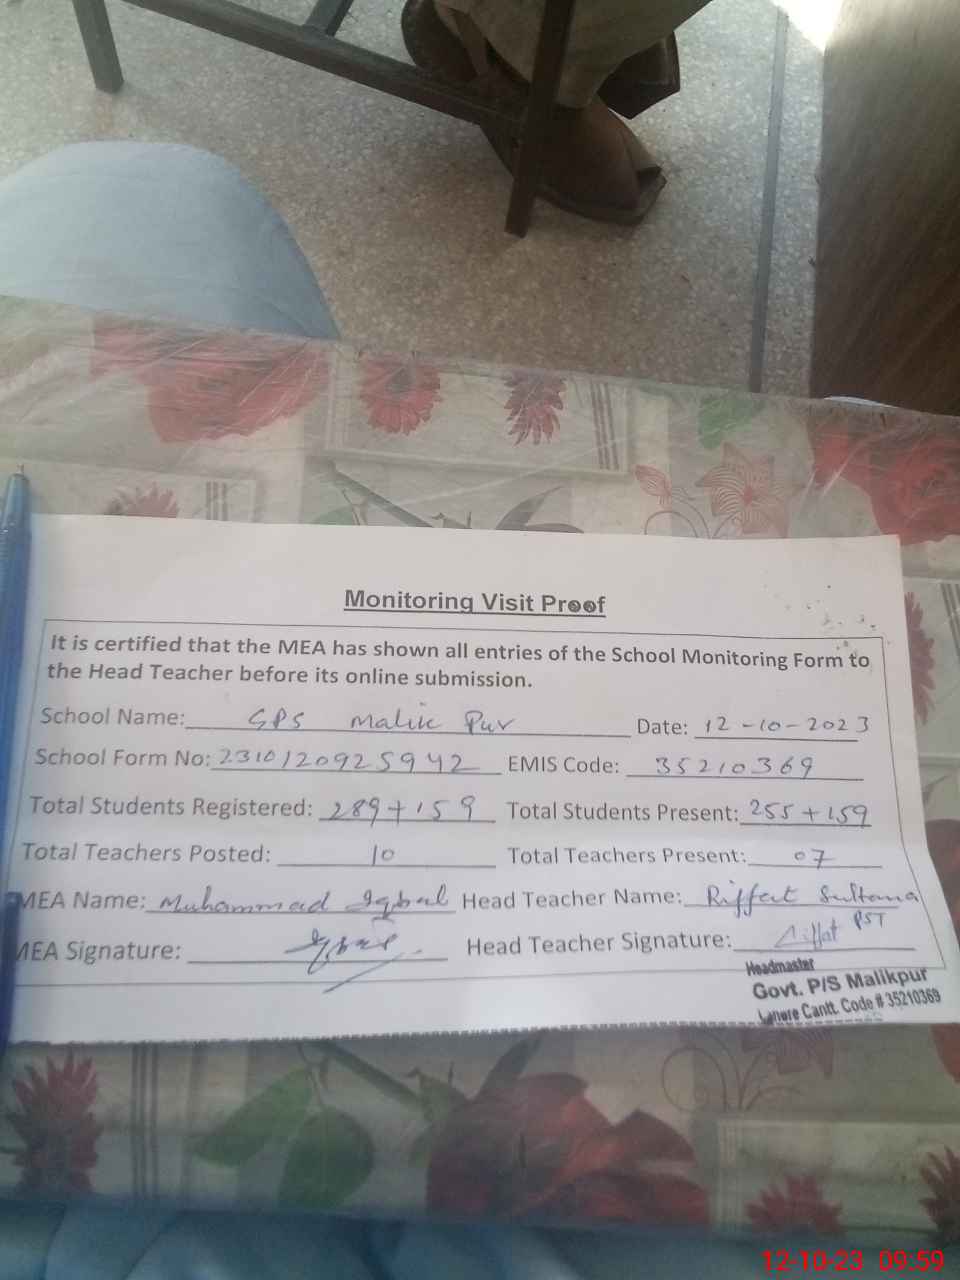 Monitoring Visit Proof
It is certified that the MEA has shown all entries of the School Monitoring Form to
the Head Teacher before its online submission.
School Name: GPS Malik Pur Date: 12-10-2023
School Form No: 2310120925942 EMIS Code: 35210369
Total Students Registered: 289+159 Total Students Present: 255+159
Total Teachers Posted: 10 Total Teachers Present: 07
MEA Name: Muhammad Iqbal Head Teacher Name: Riffat Sultana
MEA Signature: Iqbal Head Teacher Signature: Riffat PST
Headmaster
Govt. P/S Malikpur
Lahore Cantt. Code # 35210369
12-10-23 09:59